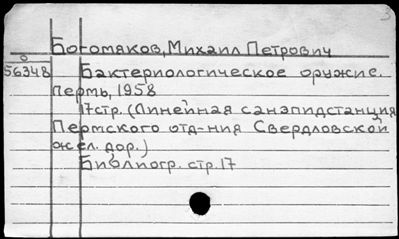 Богомяков, Михаил Петрович
0
56348
Бактериологическое оружие.
Пермь, 1958
17стр. (Линейная санэпидстанция
Пермского отд-ния Свердловской
жел. дор.)
Библиогр. стр. 17